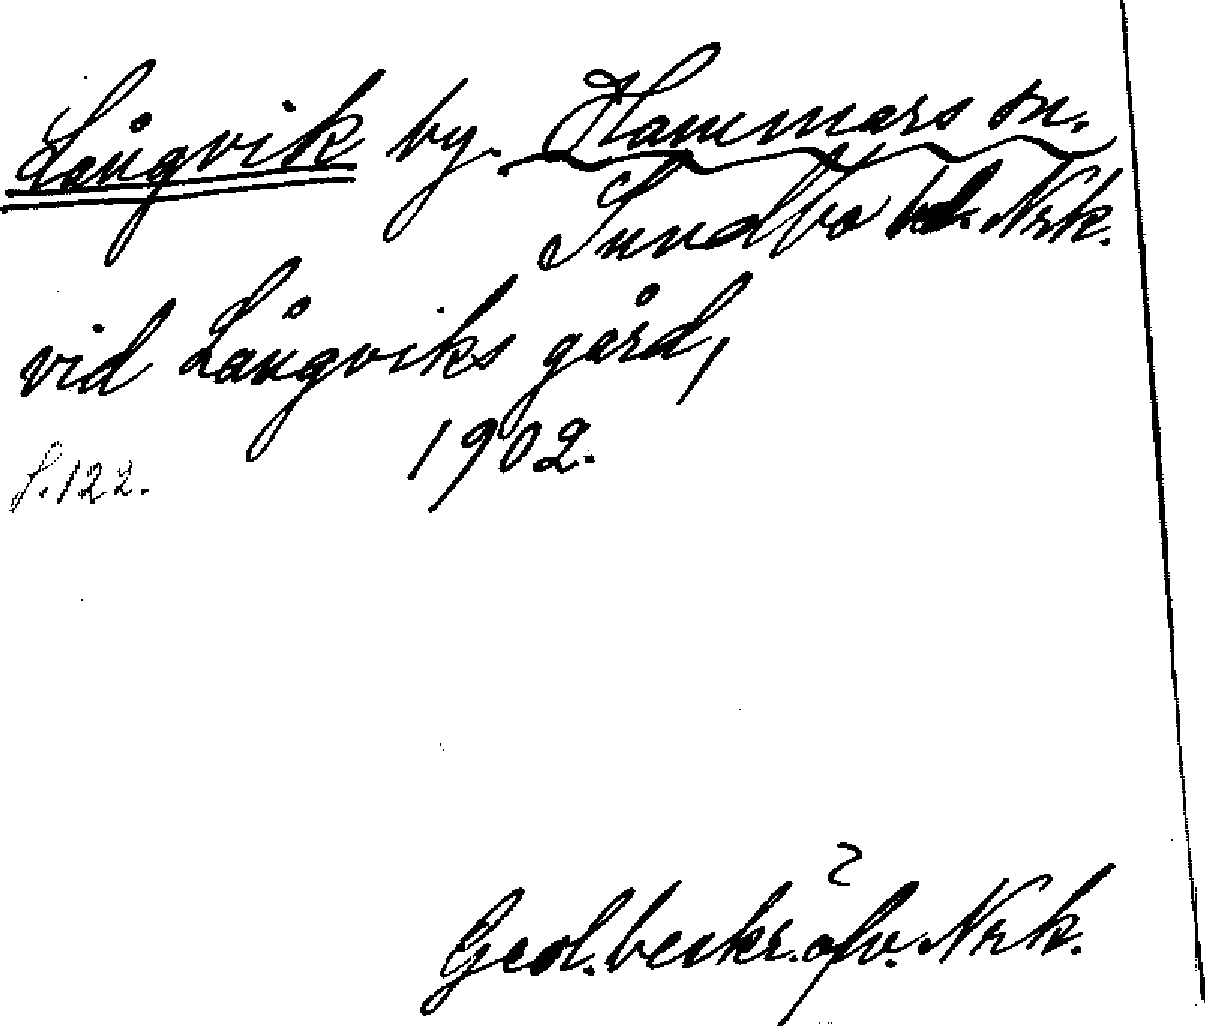 Långvik by. Hammars sn.
Sundbo hd. Nrk.
vid Långviks gård,
1902.
S. 122.
Geol. beskr. öfv. Nrk.